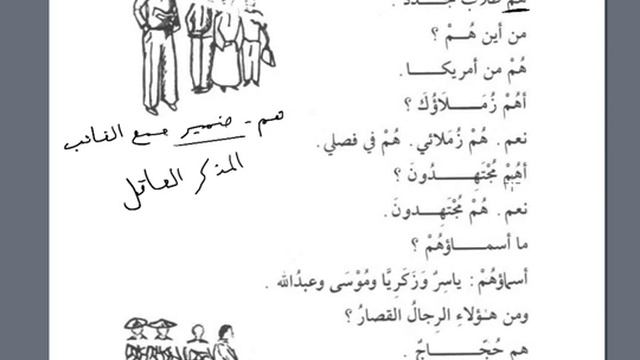 هُمْ طُلَّابٌ جُدُدٌ .
من أين هُمْ ؟
هُمْ من أمريكـــا .
أهُمْ زُمَــلَاؤُكَ ؟
نعم . هُمْ زُمَلائي . هُمْ في فصلي .
أهُمْ مُجْتَهِــدُونَ ؟
نعم . هُمْ مُجْتَهِــدونَ .
ما أسمــاؤهُمْ ؟
أسماؤهُمْ : ياسِرٌ وَزَكَرِيَّا ومُوْسَى وعبدُالله .
ومن هـؤلاءِ الرِجالُ القصارُ ؟
هم حُجَّــاجٌ
هم - ضمير جمع الغائب
المذكر العاقل